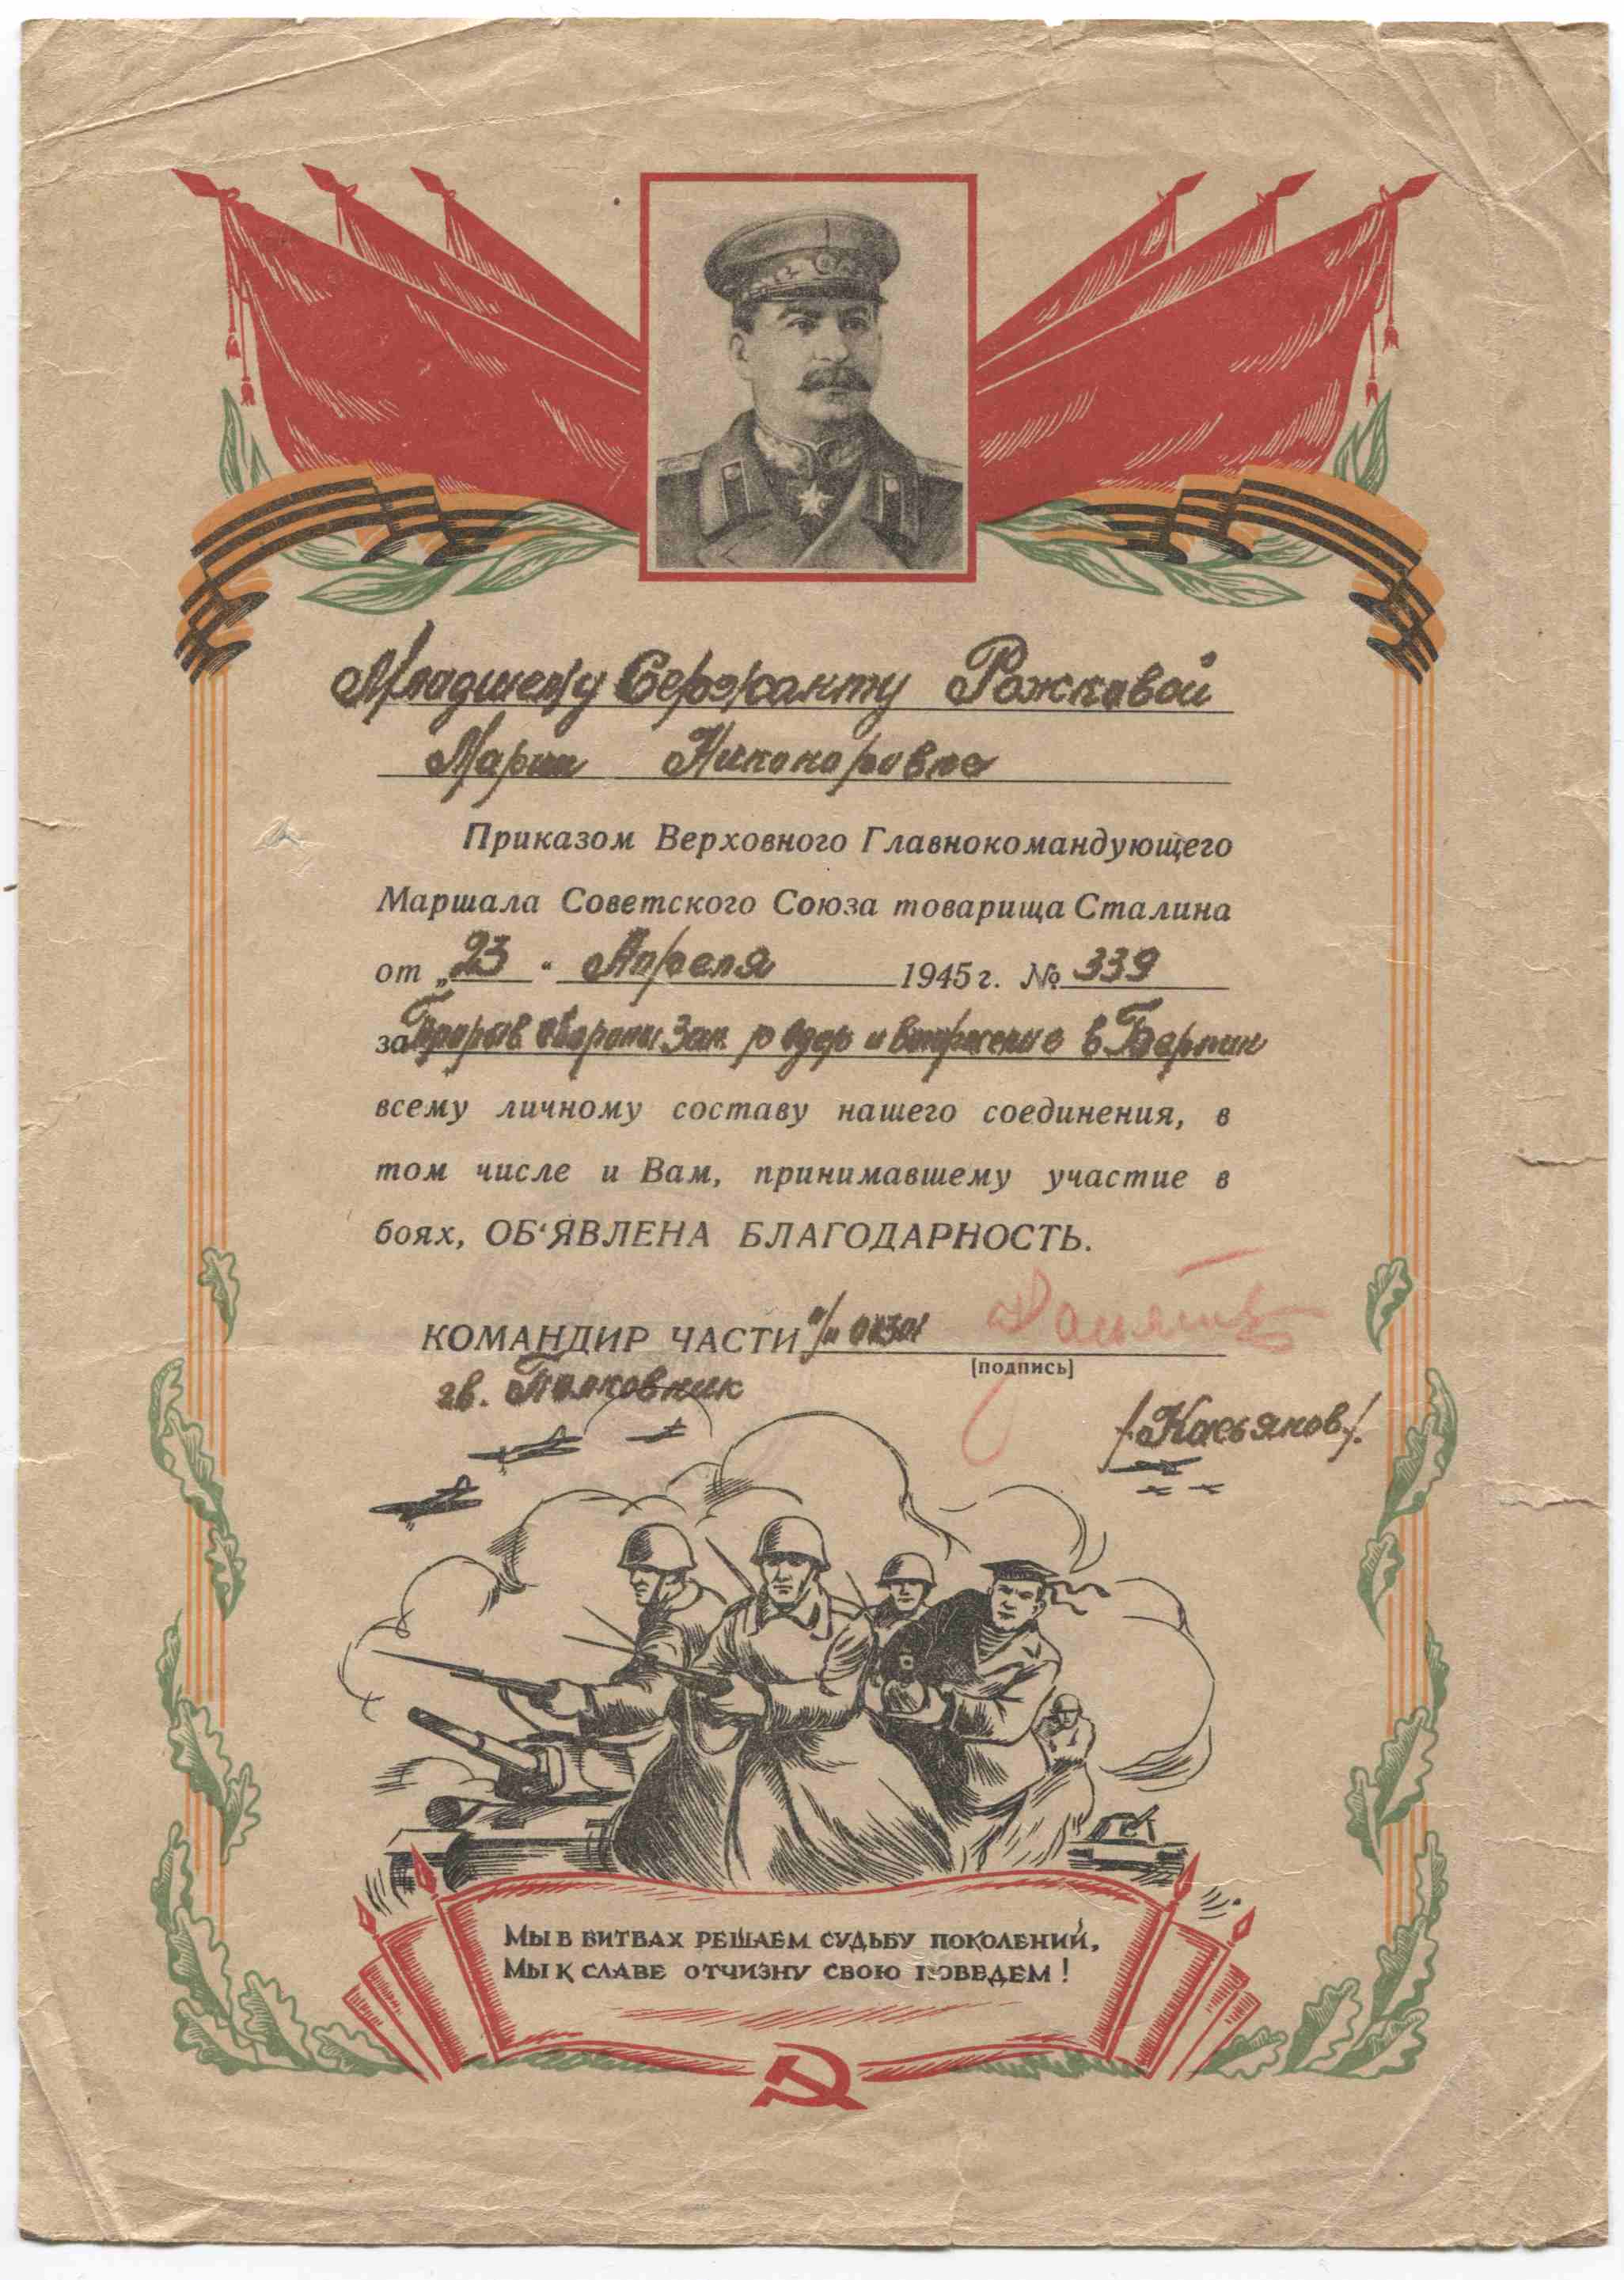 Младшему Сержанту Рожковой
Марии Никоноровне
Приказом Верховного Главнокомандующего
Маршала Советского Союза товарища Сталина
от „23“ Апреля 1945 г. № 339
за Прорыв обороны Зап. р Одер и вторжение в Берлин
всему личному составу нашего соединения, в
том числе и Вам, принимавшему участие в
боях, ОБ‘ЯВЛЕНА БЛАГОДАРНОСТЬ.
КОМАНДИР ЧАСТИ п/п
(подпись)
гв. Полковник
/Касьянов/.
МЫ В БИТВАХ РЕШАЕМ СУДЬБУ ПОКОЛЕНИЙ,
МЫ К СЛАВЕ ОТЧИЗНУ СВОЮ ПОВЕДЕМ!